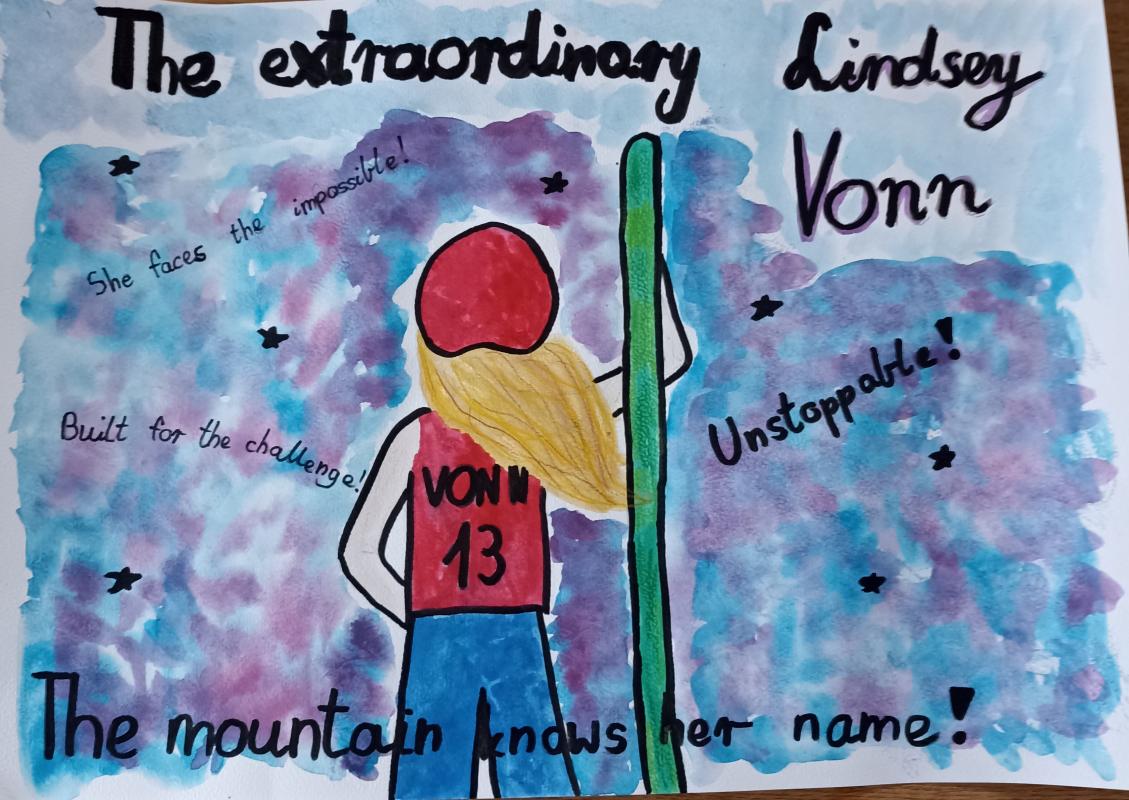 The extraordinary Lindsey
Vonn
She faces the impossible!
Unstoppable!
Built for the challenge!
VONN
13
The mountain knows her name!